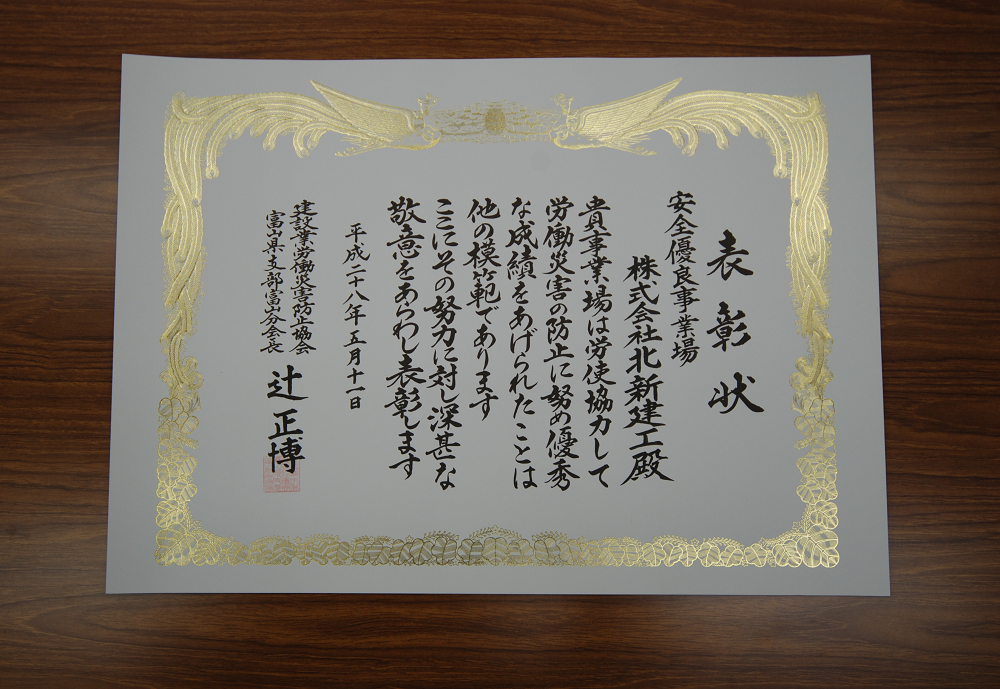 表彰状
安全優良事業場
株式会社北新建工殿
貴事業場は労使協力して
労働災害の防止に努め優秀
な成績をあげられたことは
他の模範であります
ここにその努力に対し深甚な
敬意をあらわし表彰します
平成二十八年五月十一日
建設業労働災害防止協会
富山県支部富山分会長
辻正博